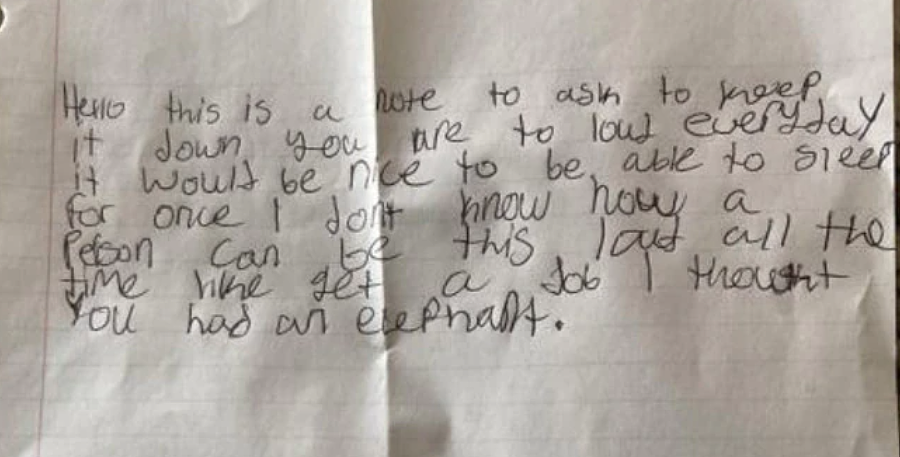 Hello this is a note to ask to keep
it down you are to loud everyday
it would be nice to be able to sleep
for once I dont know how a
Person can be this loud all the
time like get a Job I thought
You had an elephant.